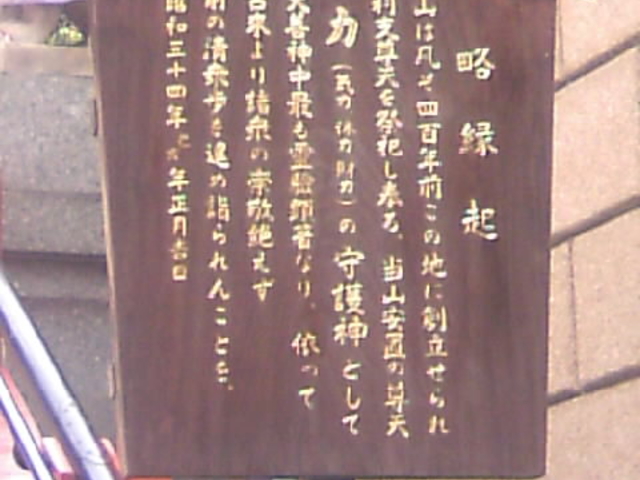 略縁起
山は凡そ四百年前この地に創立せられ
利支尊天を祭祀し奉る、当山安置の尊天
力(気力体力財力)の守護神として
大善神中最も霊験顕著なり、依って
古来より諸衆の崇敬絶えず
前の清衆歩を進め詣られんことを、
昭和三十四年 年正月吉日